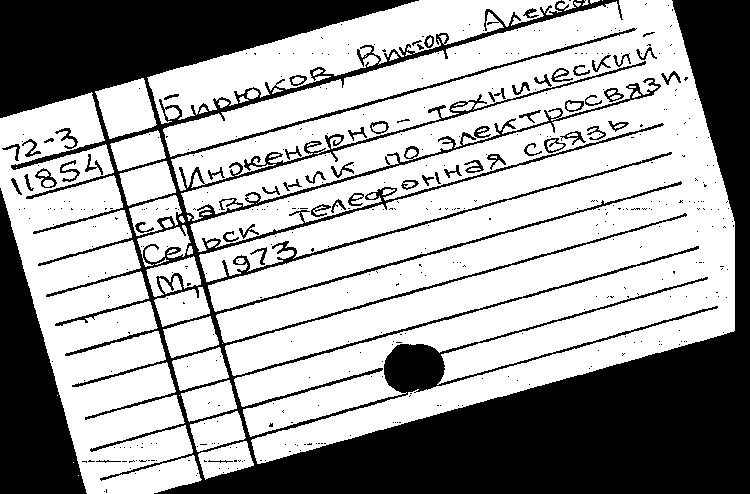 Бирюков, Виктор
72-3
11854
Инженерно-технический
справочник по электросвязи.
Сельск. телефонная связь.
М., 1973.